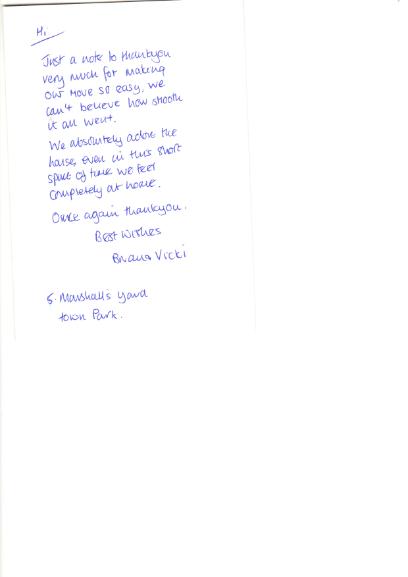 Hi,
Just a note to thankyou
very much for making
our move so easy, we
can't believe how smooth
it all went.
We absolutely adore the
house, even in this short
space of time we feel
completely at home.
Once again thankyou.
Best Wishes
Brian & Vicki
5. Marshall's Yard
town Park.